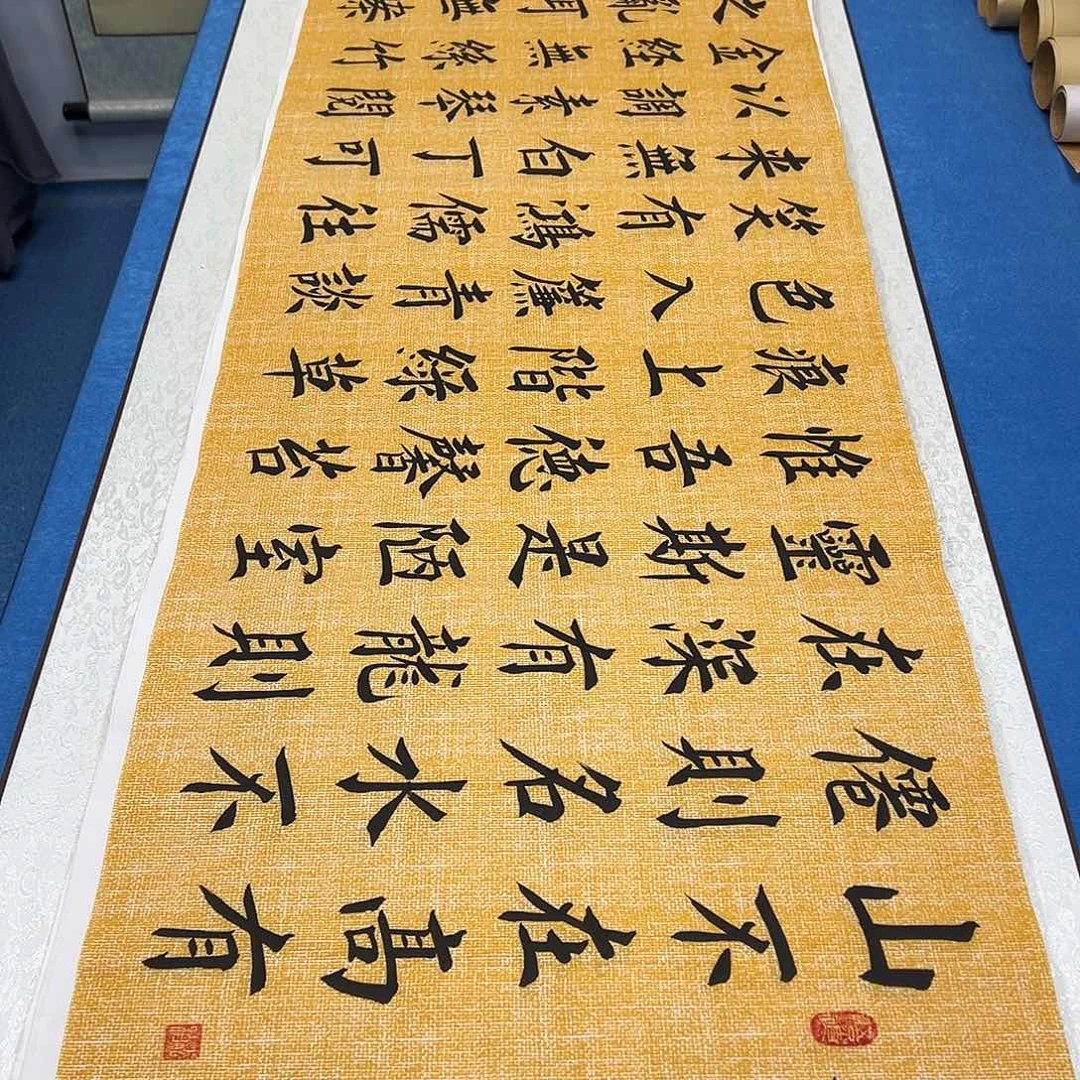 山不在髙有
僊則名水不
在深有龍則
靈斯是陋室
惟吾德馨苔
痕上階綠草
色入簾青談
笑有鴻儒往
来無白丁可
以調素琴閱
金經無絲竹
之亂耳無